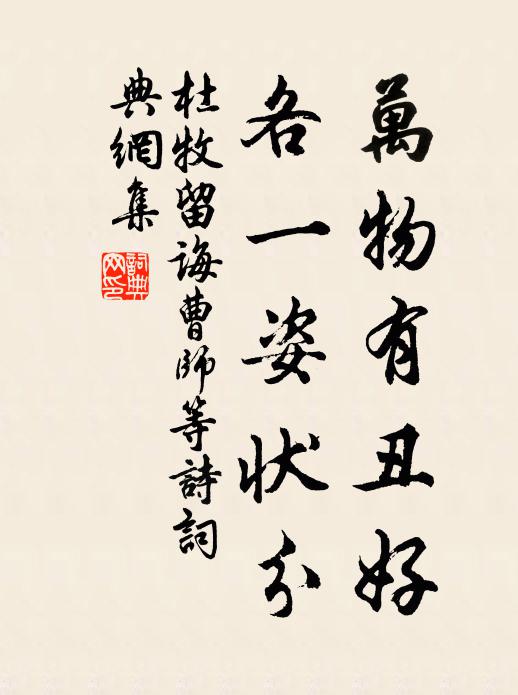 萬物有丑好
各一姿狀分
杜牧留誨曹師等詩詞
典網集
詞典
网印